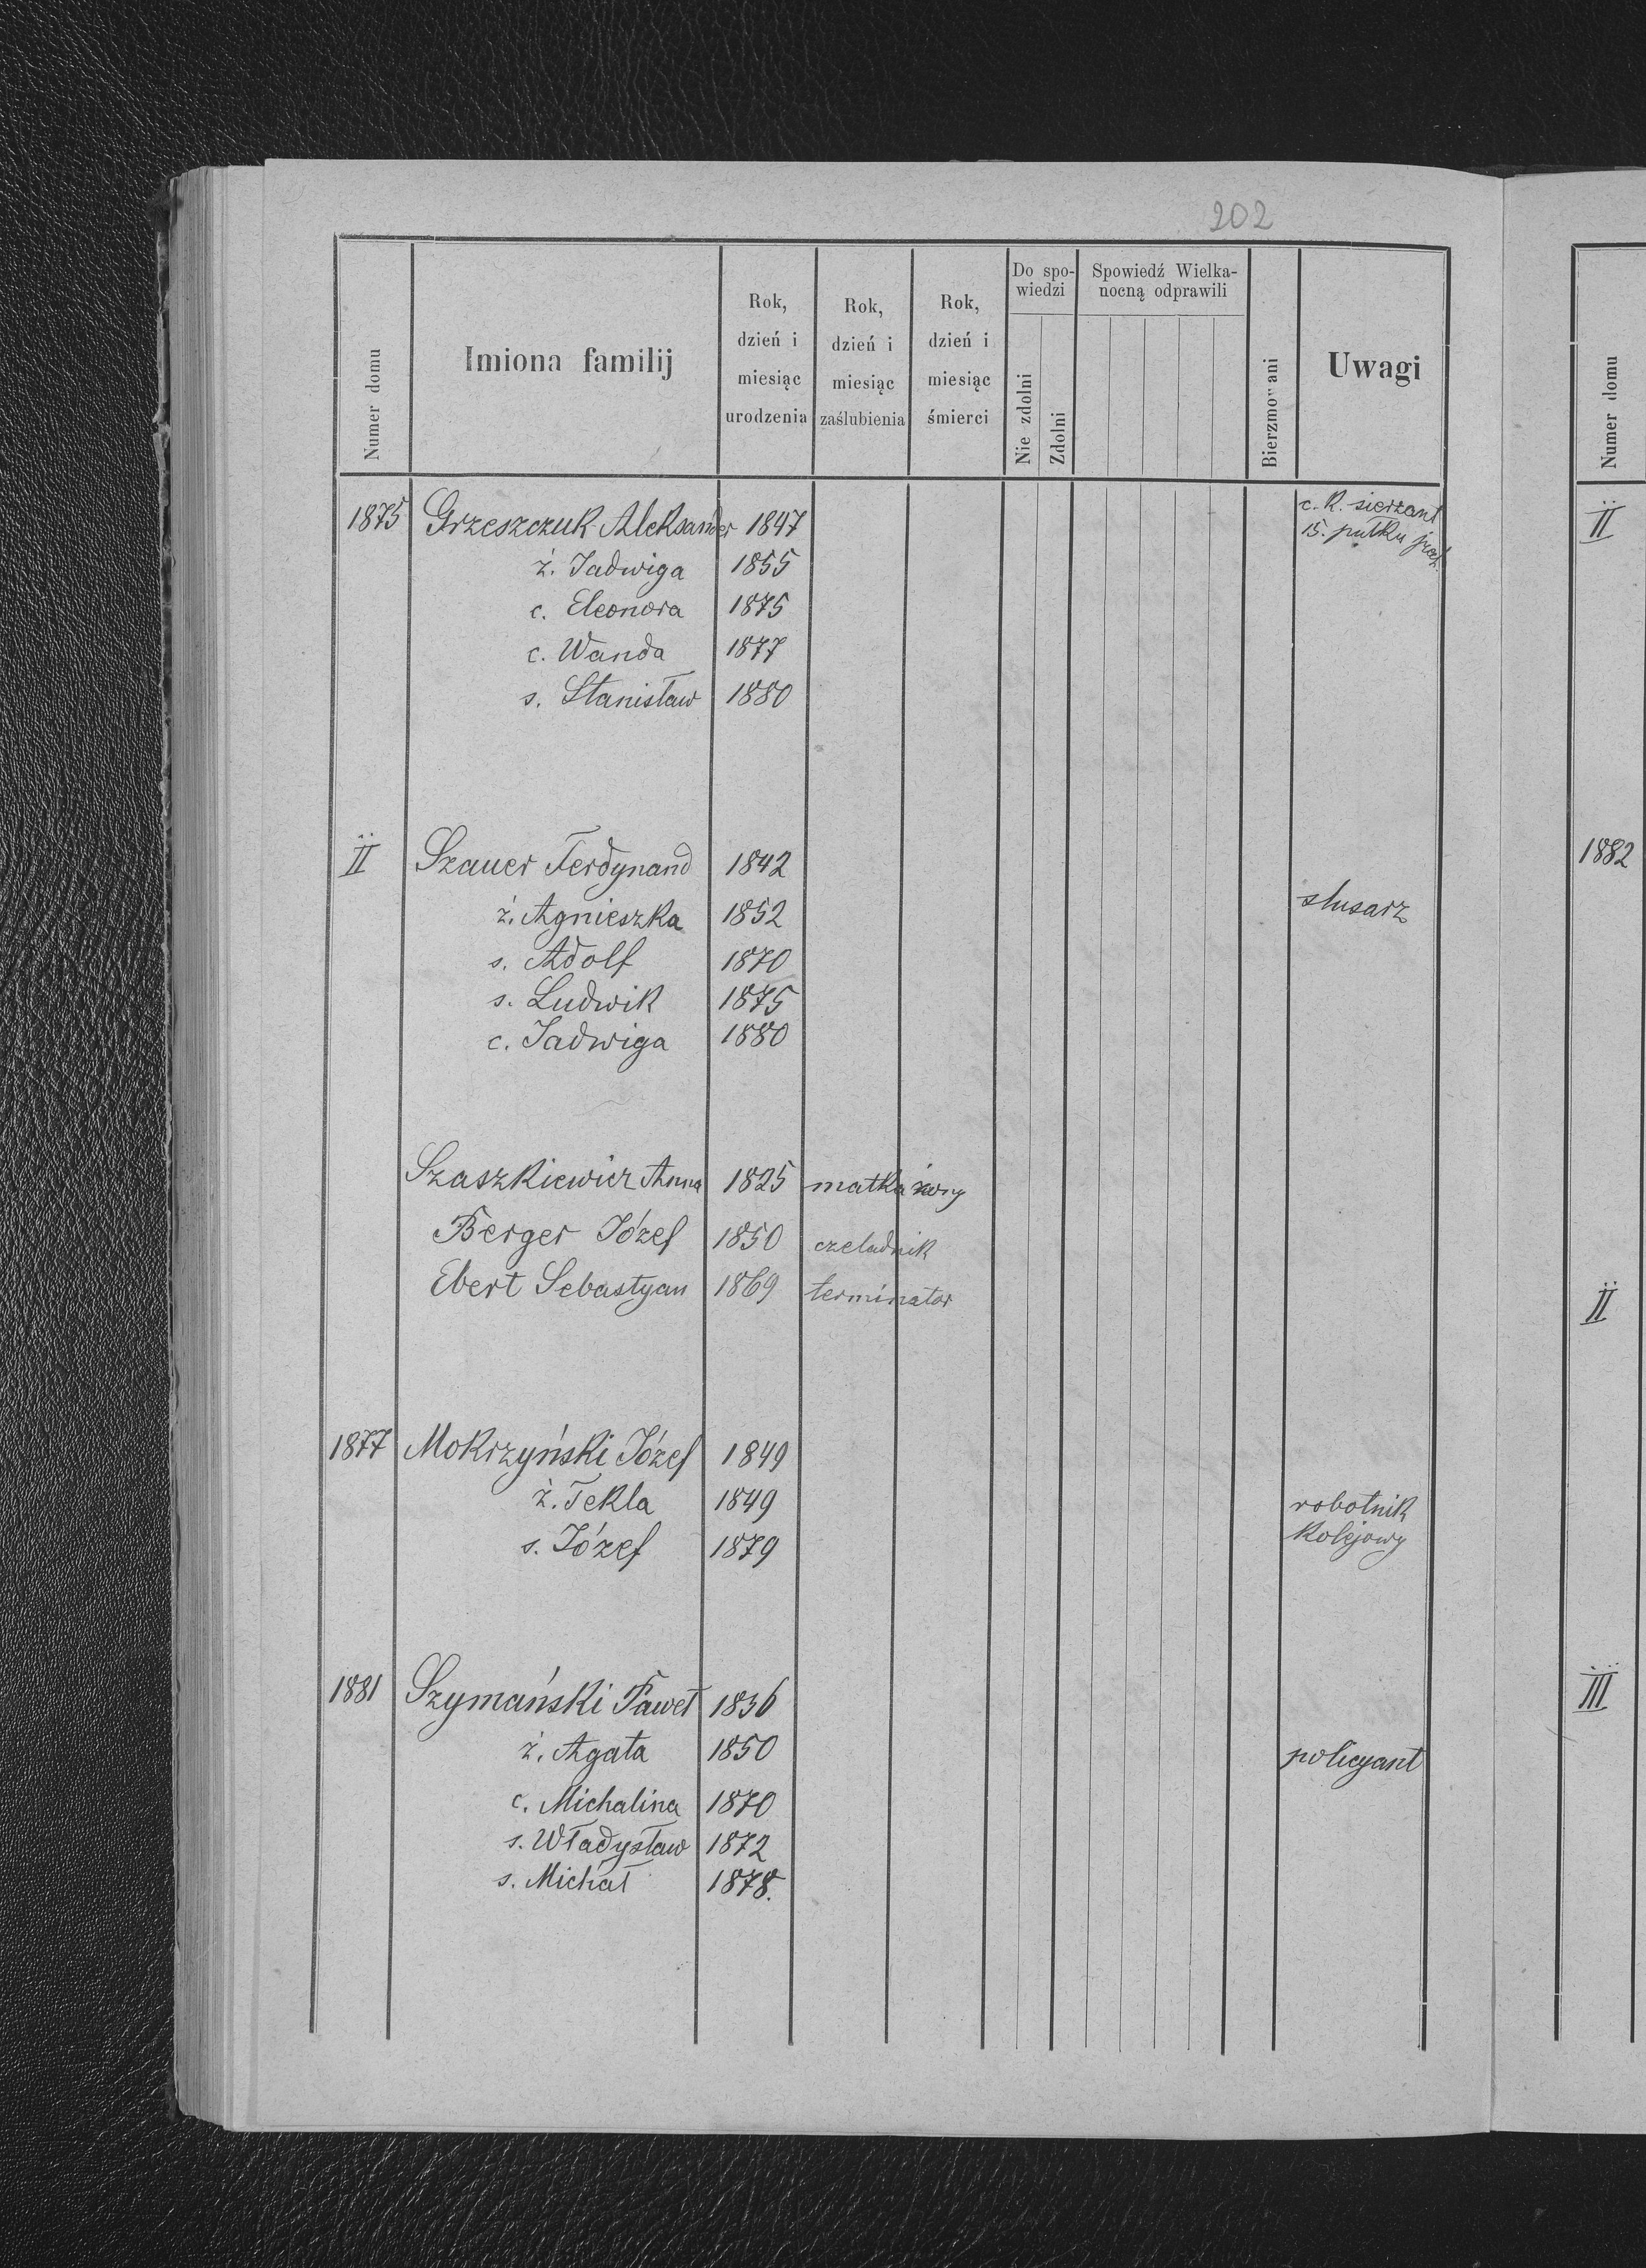 202
Numer domu
Imiona familij
Rok, dzień i miesiąc urodzenia
Rok, dzień i miesiąc zaślubienia
Rok, dzień i miesiąc śmierci
Do spo-
wiedzi
Nie zdolni
Zdolni
Spowiedź Wielka-
nocną odprawili
Bierzmowani
Uwagi
1875 Grzeszczuk Aleksander 1847 c. k. sierżant
15. pułku
ż. Jadwiga 1855
c. Eleonora 1875
c. Wanda 1877
s. Stanisław 1880
II Szauer Ferdynand 1842
ż. Agnieszka 1852 slusarz
s. Adolf 1870
s. Ludwik 1875
c. Jadwiga 1880
Szaszkiewicz Anna 1825 matka żony
Berger Józef 1850 czeladnik
Ebert Sebastyan 1869 terminator
1877 Mokrzyński Józef 1849
ż. Tekla 1849 robotnik
s. Józef 1879 kolejowy
1881 Szymański Paweł 1836
ż. Agata 1850 policyant
c. Michalina 1870
s. Władysław 1872
s. Michał 1878.
Numer domu
II
1882
II
III